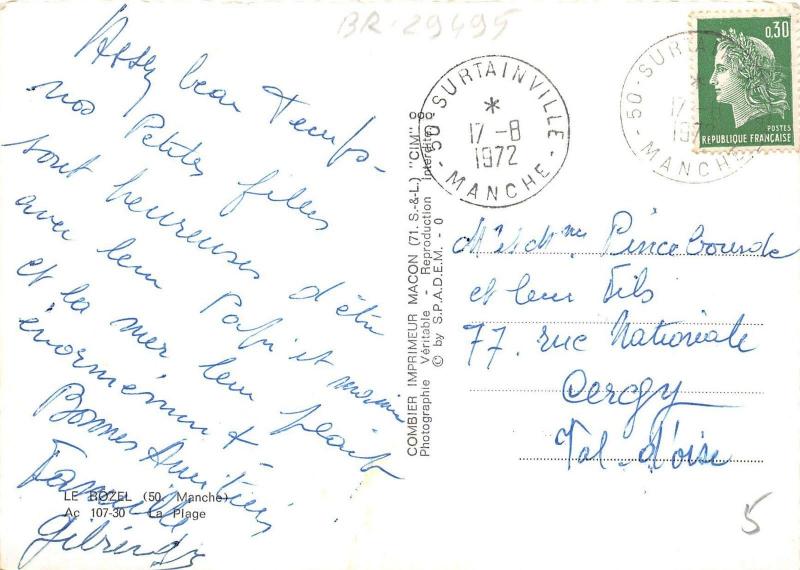 BR-29495
Assez beau Temps-
nos Petites filles
sont heureuses d'être
avec leur Papi et mamie
et la mer leur plait
énormément +
Bonnes Amitiés
Famille
LE ROZEL (50. Manche)
Ac 107-30 La Plage
COMBIER IMPRIMEUR MACON (71. S.-&-L.) "CIM"
Photographie Véritable - Reproduction interdite
© by S.P.A.D.E.M. - 0
50 - SURTAINVILLE
*
17 -8
1972
- MANCHE -
50 - SURTA
*
17
1972
- MANCHE
0,30
POSTES
REPUBLIQUE FRANÇAISE
Mr et Mme Pincebourde
et leur Fils
77. rue Nationale
Cergy
Val-d'oise
5